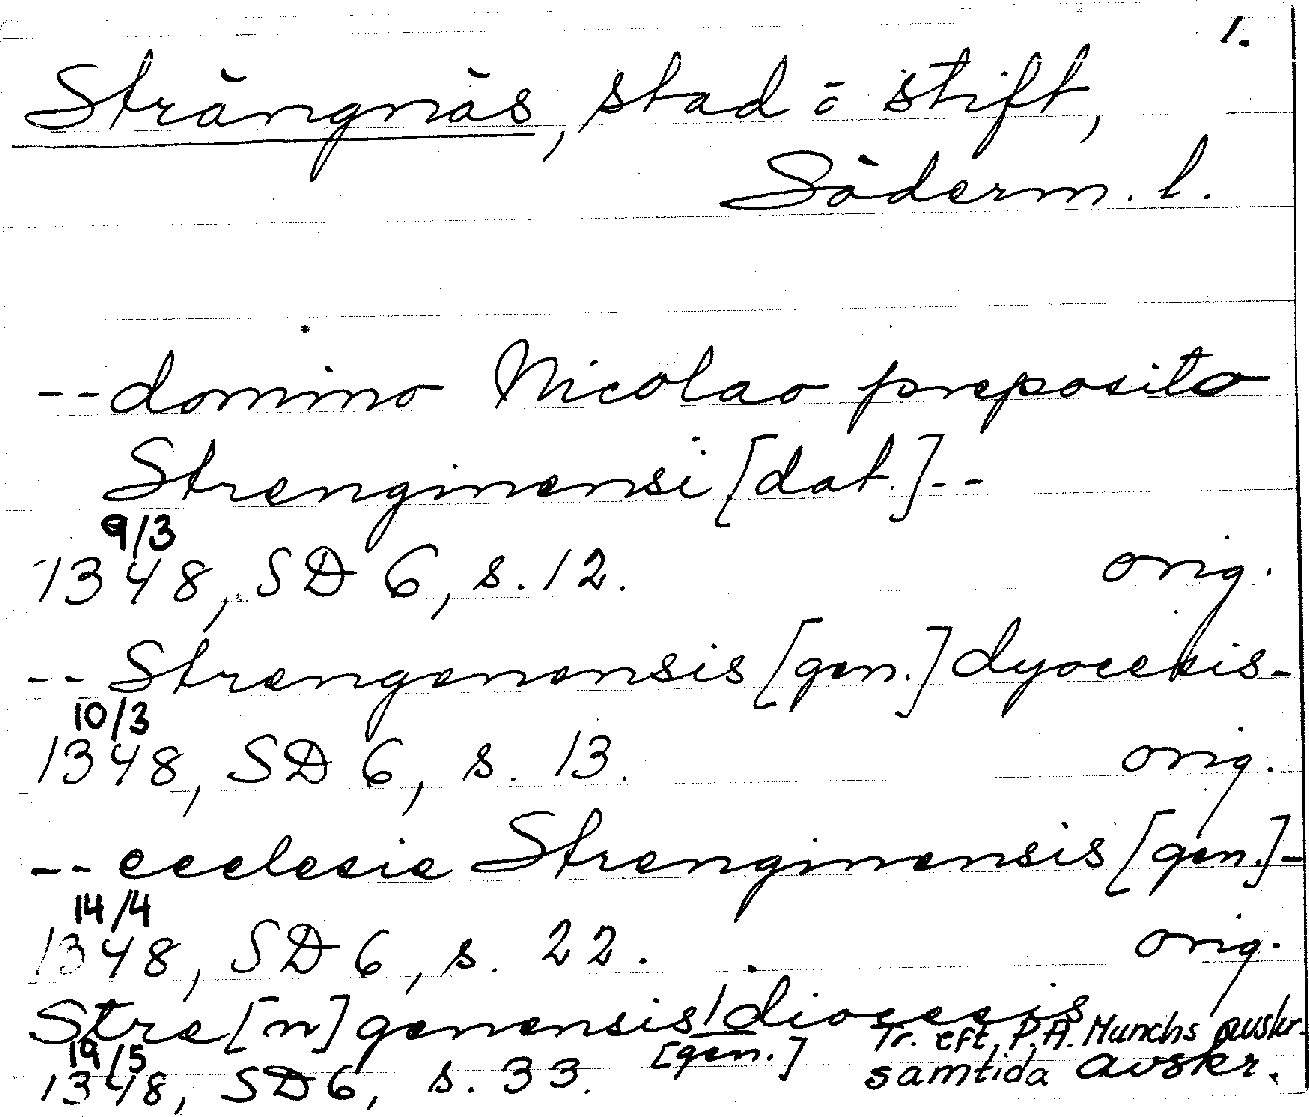 1.
Strängnäs, stad o stift,
Söderm. l.
-- domino Nicolao preposito
Strenginensi [dat.] --
9/3
1348, SD 6, s. 12. orig.
-- Strengenensis [gen.] dyocesis -
10/3
1348, SD 6, s. 13. orig.
-- ecclesie Strenginensis [gen.] -
14/4
1348, SD 6, s. 22. orig.
Stre[n]genensis / diocesis
19/5 [gen.] Tr. eft. P.A. Munchs avskr.
1348, SD 6, s. 33. samtida avskr.